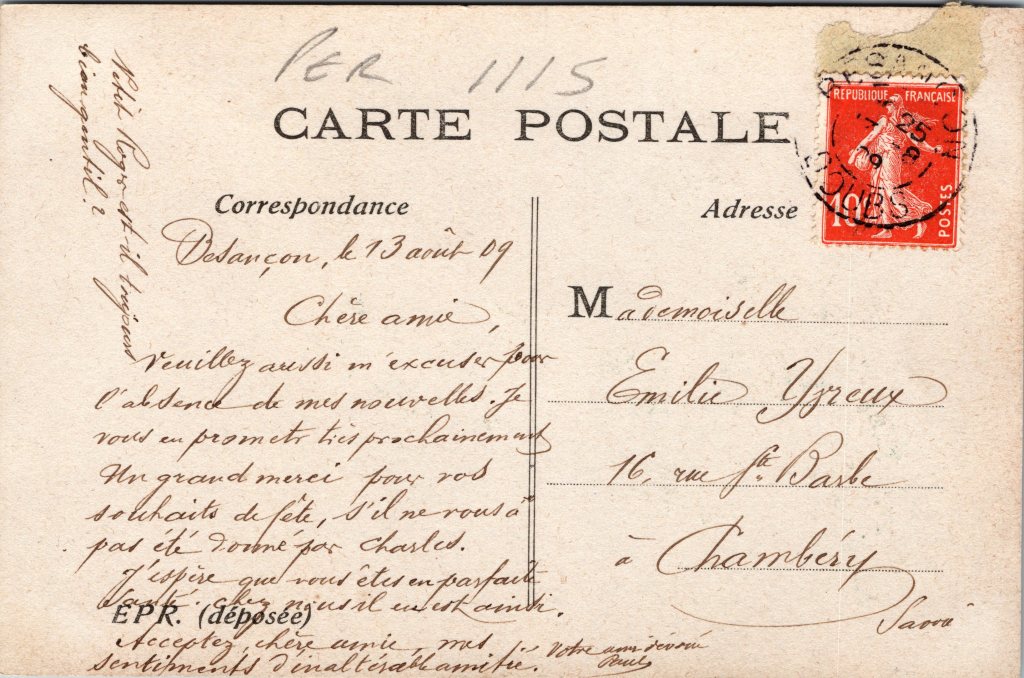 PER 1115
CARTE POSTALE
Correspondance
Adresse
RÉPUBLIQUE FRANÇAISE
10
POSTES
DOUBS
25
Besançon, le 13 août 09
Chère amie,
Veuillez aussi m'excuser pour
l'absence de mes nouvelles. Je
vous en promets très prochainement
Un grand merci pour vos
souhaits de fête, s'il ne vous a
pas été donné par Charles.
J'espère que vous êtes en parfaite
santé. chez nous il en est ainsi.
EPR. (déposée)
Acceptez, chère amie, mes
sentiments d'inaltérable amitié.
Votre ami dévoué
Petit Roger est-il toujours
bien gentil ?
Mademoiselle
Emilie
16, rue Ste. Barbe
à Chambéry
Savoie